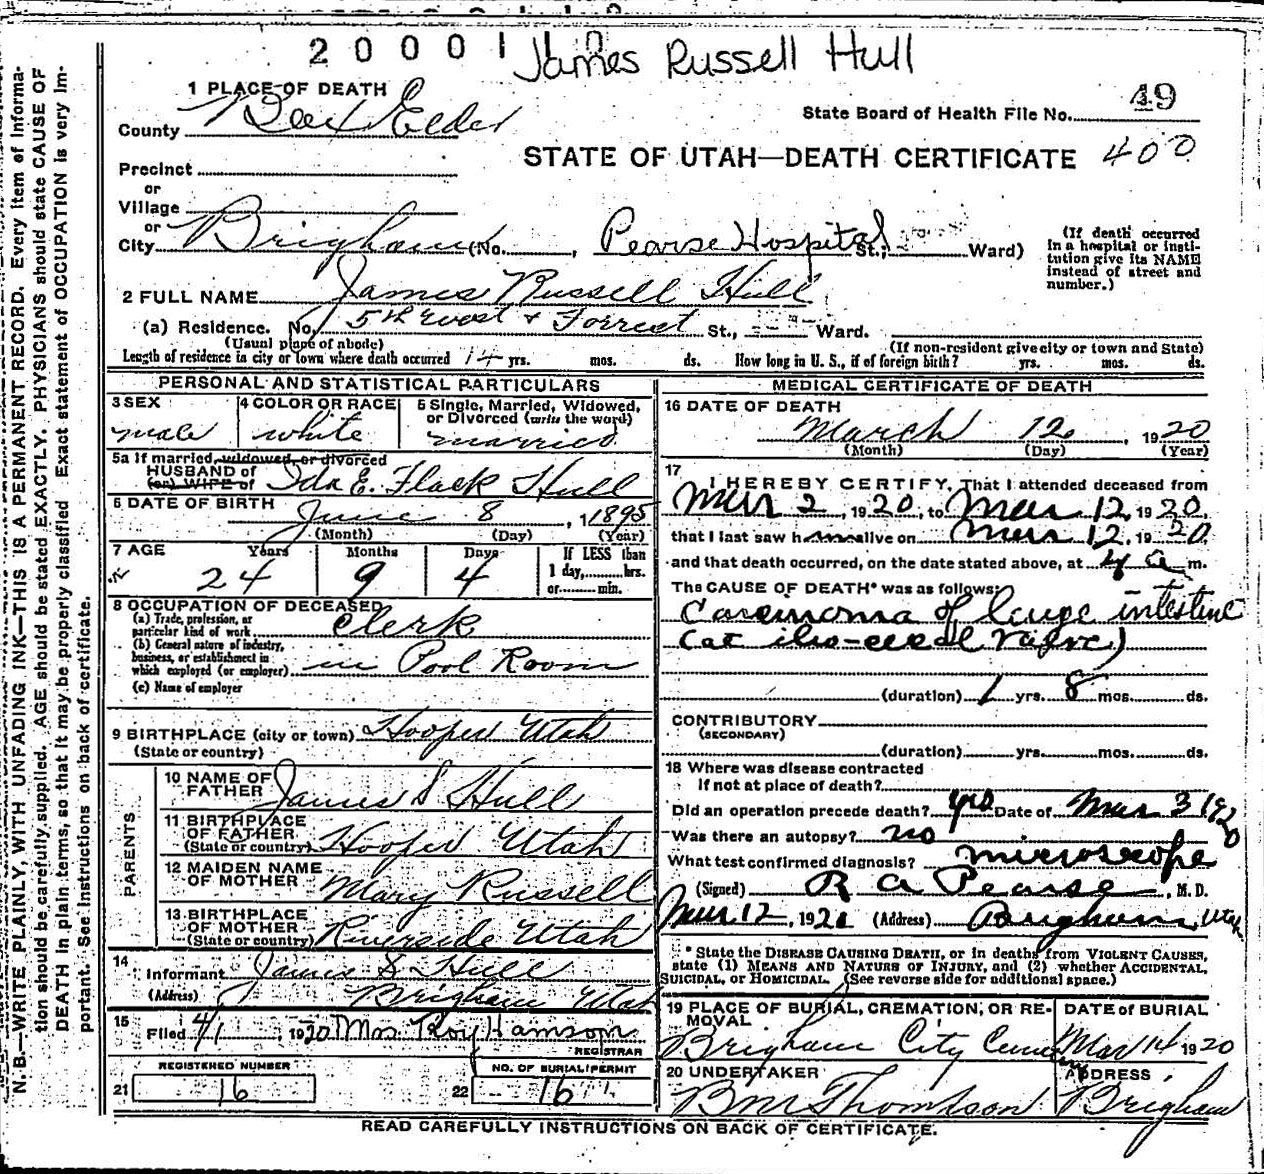 James Russell Hull
1 PLACE OF DEATH
County Box Elder
State Board of Health File No. 49
STATE OF UTAH—DEATH CERTIFICATE 400
Precinct
or
Village
or
City Brigham (No. , Pearse Hospital St.; Ward)
(If death occurred in a hospital or institution give its NAME instead of street and number.)
2 FULL NAME James Russell Hull
(a) Residence. No. 5th West & Forrest St., Ward.
(Usual place of abode) (If non-resident give city or town and State)
Length of residence in city or town where death occurred 14 yrs. mos. ds. How long in U. S., if of foreign birth? yrs. mos. ds.
PERSONAL AND STATISTICAL PARTICULARS
3 SEX male
4 COLOR OR RACE white
5 Single, Married, Widowed, or Divorced (write the word) married
5a If married, widowed, or divorced
HUSBAND of
(or) WIFE of Ida E. Flack Hull
6 DATE OF BIRTH June 8, 1 1895
(Month) (Day) (Year)
7 AGE Years 24 Months 9 Days 4 If LESS than 1 day, hrs. or min.
8 OCCUPATION OF DECEASED
(a) Trade, profession, or particular kind of work clerk
(b) General nature of industry, business, or establishment in which employed (or employer) in Pool Room
(c) Name of employer
9 BIRTHPLACE (city or town) Hooper Utah
(State or country)
PARENTS
10 NAME OF FATHER James S Hull
11 BIRTHPLACE OF FATHER (State or country) Hooper Utah
12 MAIDEN NAME OF MOTHER Mary Russell
13 BIRTHPLACE OF MOTHER (State or country) Riverside Utah
14 Informant James S Hull
(Address) Brigham Utah
15 Filed 4/1, 1920 Mrs. Roy Hamson
REGISTRAR
REGISTERED NUMBER
21 16
NO. OF BURIAL PERMIT
22 16
MEDICAL CERTIFICATE OF DEATH
16 DATE OF DEATH
March 12, 1920
(Month) (Day) (Year)
17 I HEREBY CERTIFY, That I attended deceased from
Mar 2, 1920, to Mar 12, 1920,
that I last saw him alive on Mar 12, 1920
and that death occurred, on the date stated above, at 4 a m.
The CAUSE OF DEATH* was as follows:
Carcinoma of large intestine
(at ilio-cecal valve)
(duration) 1 yrs. 8 mos. ds.
CONTRIBUTORY
(SECONDARY)
(duration) yrs. mos. ds.
18 Where was disease contracted
If not at place of death?
Did an operation precede death? yes Date of Mar 3 1920
Was there an autopsy? no
What test confirmed diagnosis? microscope
(Signed) R A Pearse, M. D.
Mar 12, 1920 (Address) Brigham, Utah
* State the DISEASE CAUSING DEATH, or in deaths from VIOLENT CAUSES, state (1) MEANS AND NATURE OF INJURY, and (2) whether ACCIDENTAL, SUICIDAL, or HOMICIDAL. (See reverse side for additional space.)
19 PLACE OF BURIAL, CREMATION, OR REMOVAL
Brigham City
DATE OF BURIAL
Mar 14 1920
20 UNDERTAKER
B M Thomson
ADDRESS
Brigham
READ CAREFULLY INSTRUCTIONS ON BACK OF CERTIFICATE.
N. B.—WRITE PLAINLY, WITH UNFADING INK—THIS IS A PERMANENT RECORD. Every item of information should be carefully supplied. AGE should be stated EXACTLY. PHYSICIANS should state CAUSE OF DEATH in plain terms, so that it may be properly classified. Exact statement of OCCUPATION is very important. See instructions on back of certificate.